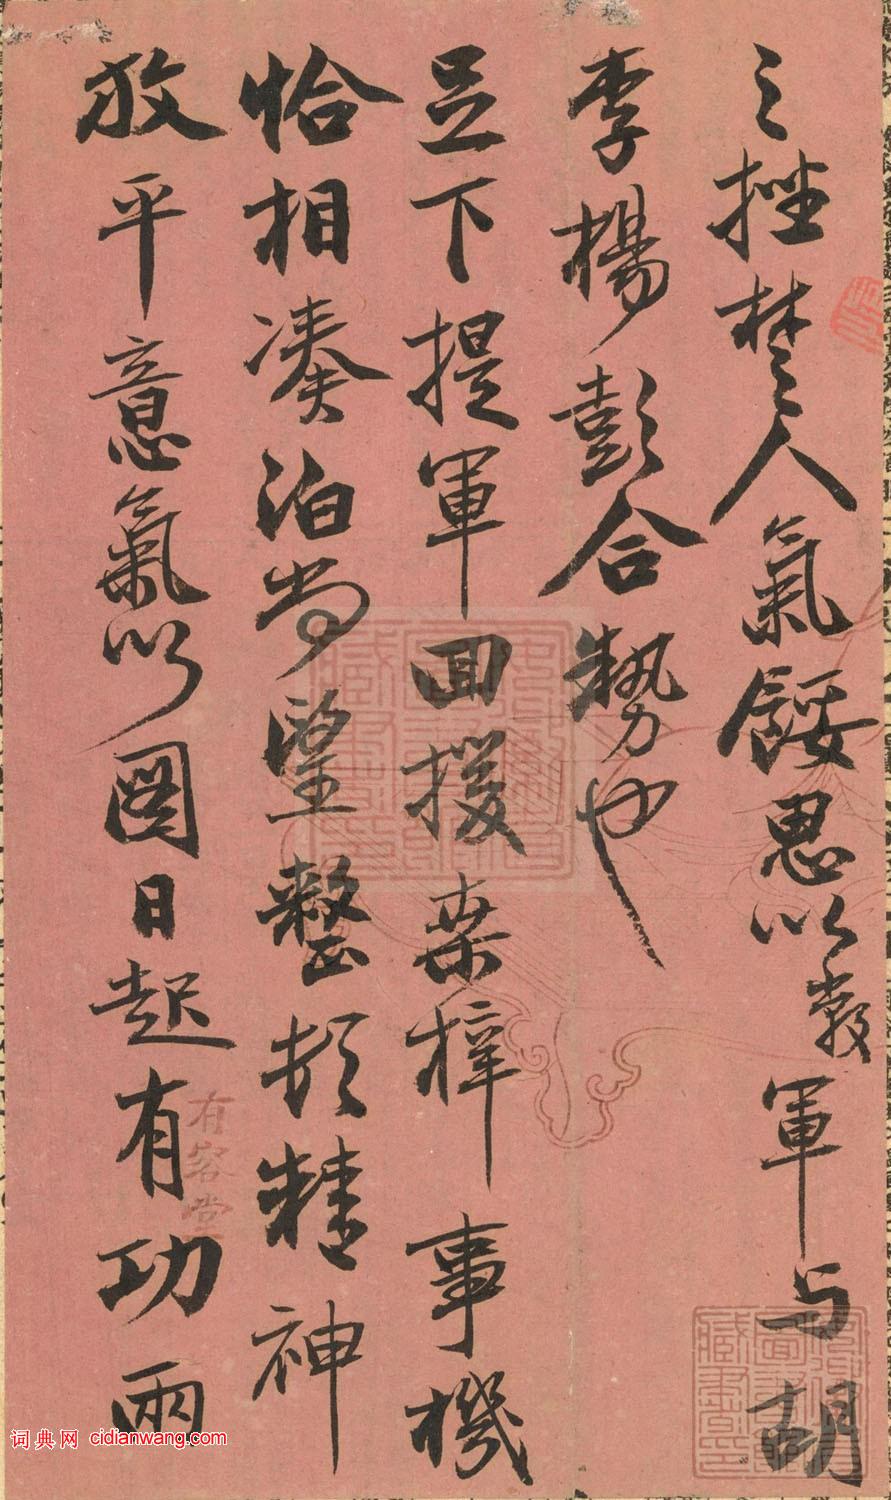 之挫楚人氣餒思以敝軍与胡
李楊彭合勢也
足下提軍回援桑梓事機
恰相湊泊尚望整頓精神
放平意氣以圖日起有功兩
有容堂
词典网 cidianwang.com